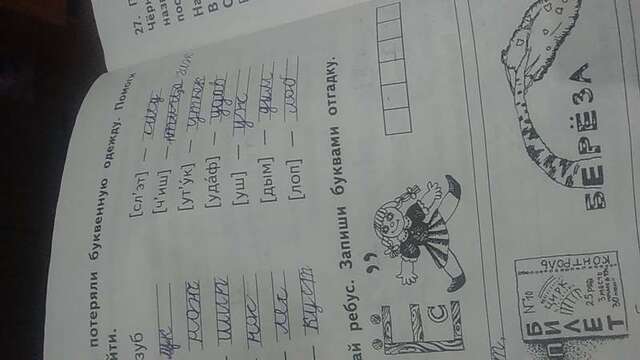 потеряли буквенную одежду. Помоги
йти.
зуб
лук
нож
шип
нос
лес
куст
[сл'эт] — след
[ч'иш] — чиж
[ут'у́к] — утюг
[уда́ф] — удав
[уш] — уж
[дым] — дым
[лоп] — лоб
27.
Чёрн
наз
пос
На
В
ай ребус. Запиши буквами отгадку.
Ё С ,,
П БИЛЕТ
№ 10
ЦИРК
25 ряд
3 место
КОНТРОЛЬ
БЕРЁЗА